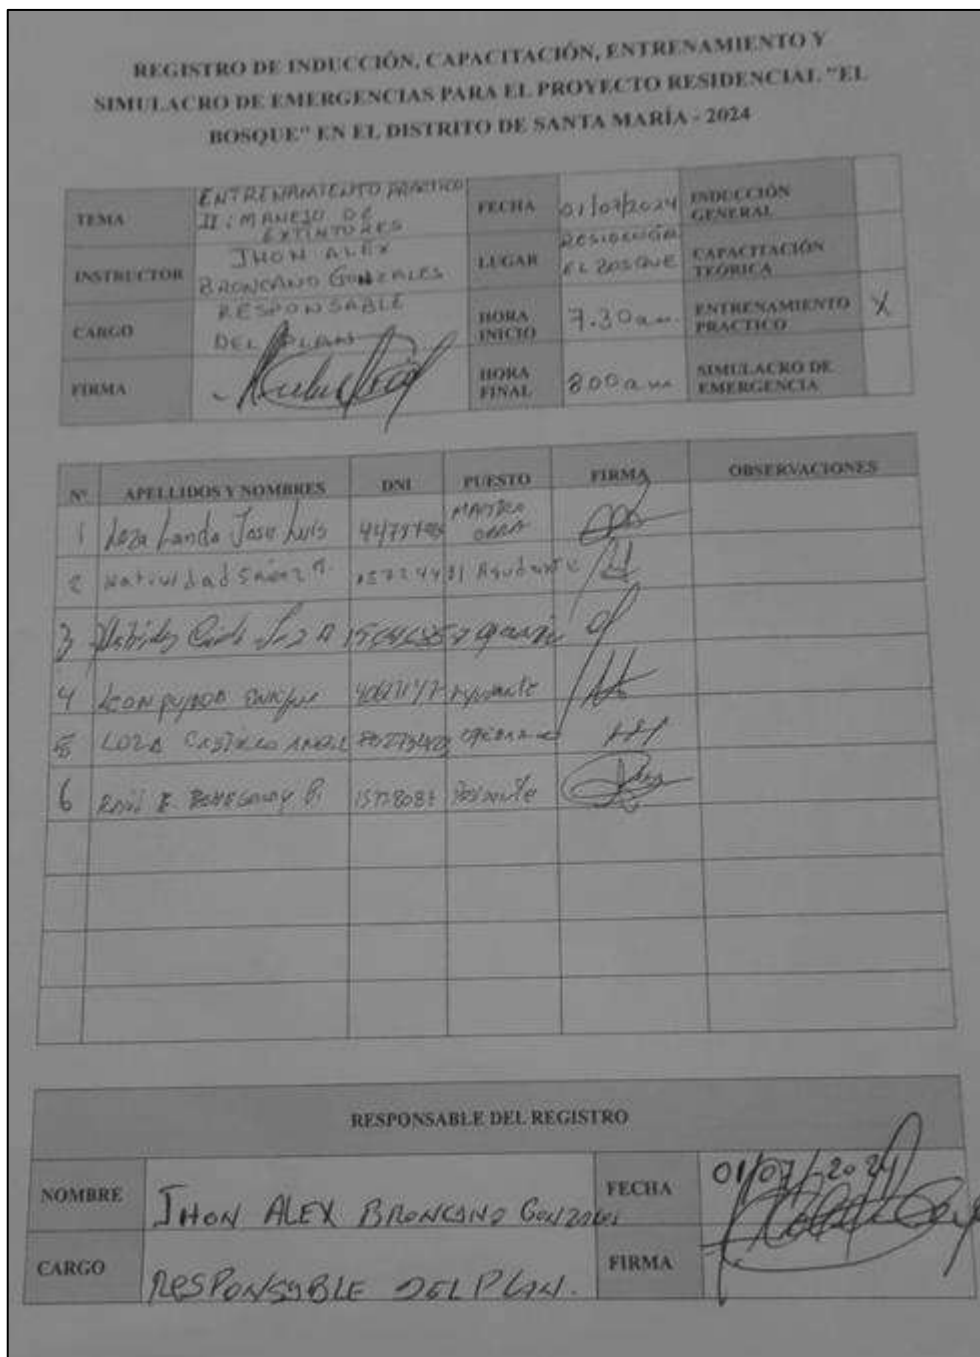 REGISTRO DE INDUCCIÓN, CAPACITACIÓN, ENTRENAMIENTO Y
SIMULACRO DE EMERGENCIAS PARA EL PROYECTO RESIDENCIAL "EL
BOSQUE" EN EL DISTRITO DE SANTA MARÍA - 2024
TEMA ENTRENAMIENTO PRACTICO II: MANEJO DE EXTINTORES FECHA 01/07/2024 INDUCCIÓN GENERAL
INSTRUCTOR JHON ALEX BRONCANO GONZALES LUGAR RESIDENCIAL EL BOSQUE CAPACITACIÓN TEÓRICA
CARGO RESPONSABLE DEL PLAN HORA INICIO 7.30am. ENTRENAMIENTO PRACTICO X
FIRMA HORA FINAL 8 00am SIMULACRO DE EMERGENCIA
Nº APELLIDOS Y NOMBRES DNI PUESTO FIRMA OBSERVACIONES
1 Loza Landa Jose Luis MAESTRO OBRA
2 Natividad Ayudante
3
4 LEON Ayudante
5 LOZA CASTILLO
6
RESPONSABLE DEL REGISTRO
NOMBRE JHON ALEX BRONCANO GONZALES FECHA 01/07/2024
CARGO RESPONSABLE DEL PLAN. FIRMA